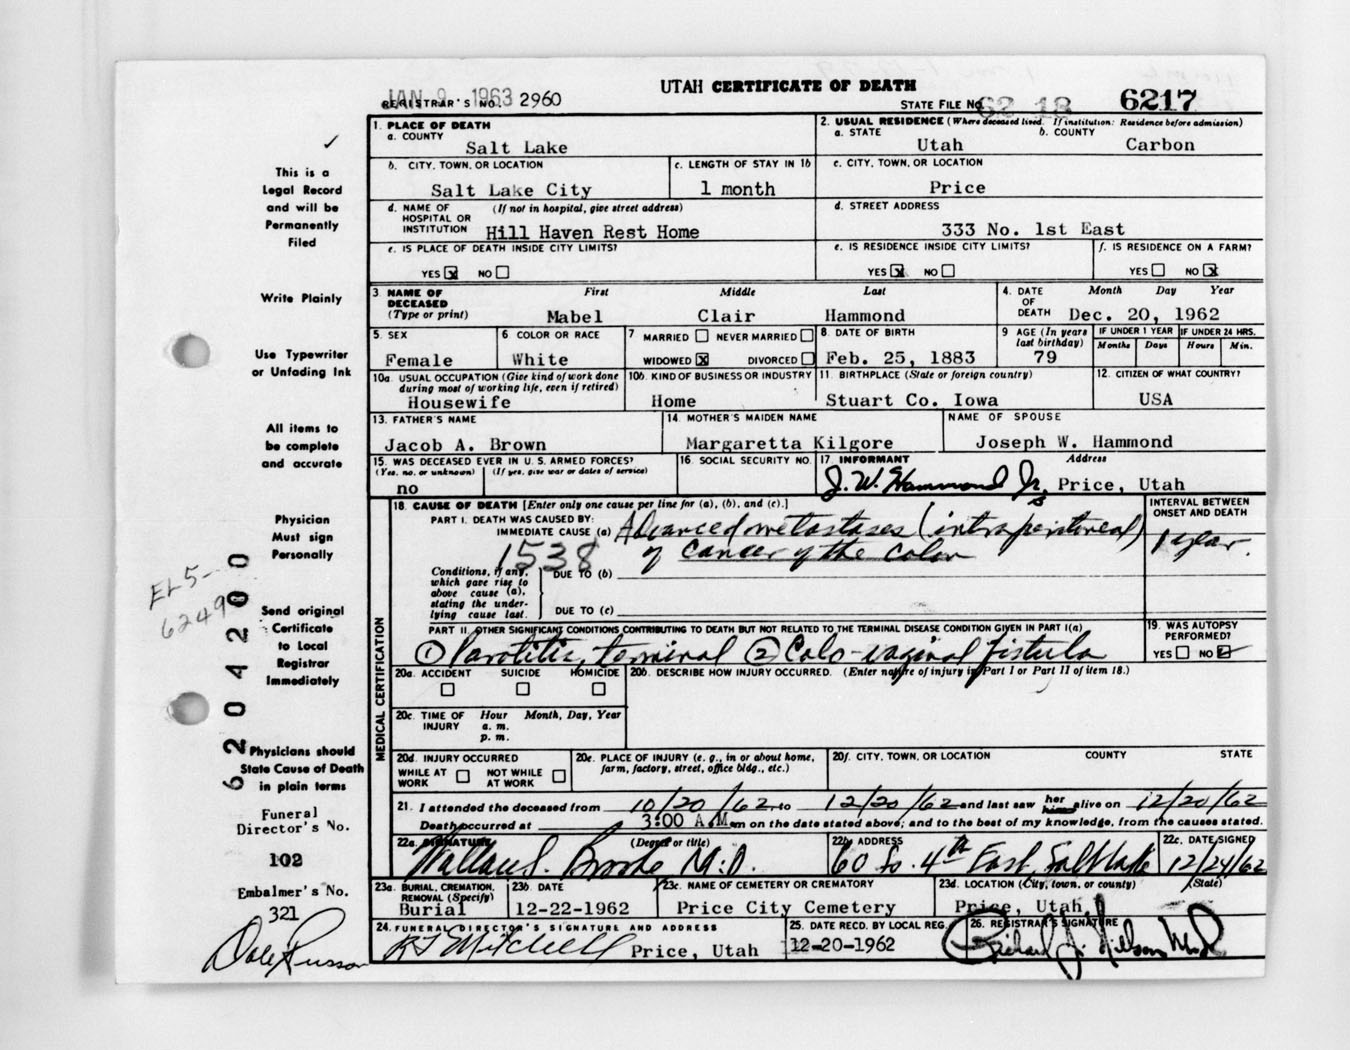 UTAH CERTIFICATE OF DEATH
JAN 9 1963
REGISTRAR'S NO. 2960
STATE FILE NO. 62 18 6217
1. PLACE OF DEATH
a. COUNTY
Salt Lake
2. USUAL RESIDENCE (Where deceased lived. If institution: Residence before admission)
a. STATE b. COUNTY
Utah Carbon
b. CITY, TOWN, OR LOCATION c. LENGTH OF STAY IN 1b
Salt Lake City 1 month
c. CITY, TOWN, OR LOCATION
Price
d. NAME OF HOSPITAL OR INSTITUTION (If not in hospital, give street address)
Hill Haven Rest Home
d. STREET ADDRESS
333 No. 1st East
e. IS PLACE OF DEATH INSIDE CITY LIMITS?
YES x NO
e. IS RESIDENCE INSIDE CITY LIMITS? f. IS RESIDENCE ON A FARM?
YES x NO YES NO x
3 NAME OF DECEASED (Type or print) First Middle Last
Mabel Clair Hammond
4. DATE OF DEATH Month Day Year
Dec. 20, 1962
5. SEX 6 COLOR OR RACE 7 MARRIED NEVER MARRIED 8 DATE OF BIRTH 9 AGE (In years last birthday) IF UNDER 1 YEAR IF UNDER 24 HRS.
Months Days Hours Min.
Female White WIDOWED x DIVORCED Feb. 25, 1883 79
10a. USUAL OCCUPATION (Give kind of work done during most of working life, even if retired) 10b. KIND OF BUSINESS OR INDUSTRY 11. BIRTHPLACE (State or foreign country) 12. CITIZEN OF WHAT COUNTRY?
Housewife Home Stuart Co. Iowa USA
13. FATHER'S NAME 14. MOTHER'S MAIDEN NAME NAME OF SPOUSE
Jacob A. Brown Margaretta Kilgore Joseph W. Hammond
15. WAS DECEASED EVER IN U. S. ARMED FORCES? 16. SOCIAL SECURITY NO. 17. INFORMANT Address
(Yes, no, or unknown) (If yes, give war or dates of service)
no J. W. Hammond Jr, Price, Utah
18. CAUSE OF DEATH [Enter only one cause per line for (a), (b), and (c).] INTERVAL BETWEEN ONSET AND DEATH
PART I. DEATH WAS CAUSED BY:
IMMEDIATE CAUSE (a) Advanced metastases (intraperitoneal) 1 year.
of cancer of the colon
1538
Conditions, if any, which gave rise to above cause (a), stating the underlying cause last.
DUE TO (b)
DUE TO (c)
PART II. OTHER SIGNIFICANT CONDITIONS CONTRIBUTING TO DEATH BUT NOT RELATED TO THE TERMINAL DISEASE CONDITION GIVEN IN PART I(a)
① Parotitis, terminal ② Colo-vaginal fistula
19. WAS AUTOPSY PERFORMED?
YES NO
20a. ACCIDENT SUICIDE HOMICIDE 20b. DESCRIBE HOW INJURY OCCURRED. (Enter nature of injury in Part I or Part II of item 18.)
20c. TIME OF INJURY Hour Month, Day, Year
a. m.
p. m.
20d. INJURY OCCURRED 20e. PLACE OF INJURY (e. g., in or about home, farm, factory, street, office bldg., etc.) 20f. CITY, TOWN, OR LOCATION COUNTY STATE
WHILE AT WORK NOT WHILE AT WORK
21. I attended the deceased from 10/20/62 to 12/20/62 and last saw her him alive on 12/20/62
Death occurred at 3:00 A.M. m on the date stated above; and to the best of my knowledge, from the causes stated.
22a. SIGNATURE (Degree or title) 22b. ADDRESS 22c. DATE SIGNED
Wallace S. Brooke M.D. 60 So. 4th East, Salt Lake 12/24/62
23a. BURIAL, CREMATION, REMOVAL (Specify) 23b. DATE 23c. NAME OF CEMETERY OR CREMATORY 23d. LOCATION (City, town, or county) (State)
Burial 12-22-1962 Price City Cemetery Price, Utah
24. FUNERAL DIRECTOR'S SIGNATURE AND ADDRESS 25. DATE RECD. BY LOCAL REG. 26. REGISTRAR'S SIGNATURE
Mitchell Price, Utah 12-20-1962 Richard J. Nelson
MEDICAL CERTIFICATION
This is a
Legal Record
and will be
Permanently
Filed
Write Plainly
Use Typewriter
or Unfading Ink
All items to
be complete
and accurate
Physician
Must sign
Personally
Send original
Certificate
to Local
Registrar
Immediately
Physicians should
State Cause of Death
in plain terms
Funeral
Director's No.
102
Embalmer's No.
321
Dale Russon
6204200
EL5-
6249